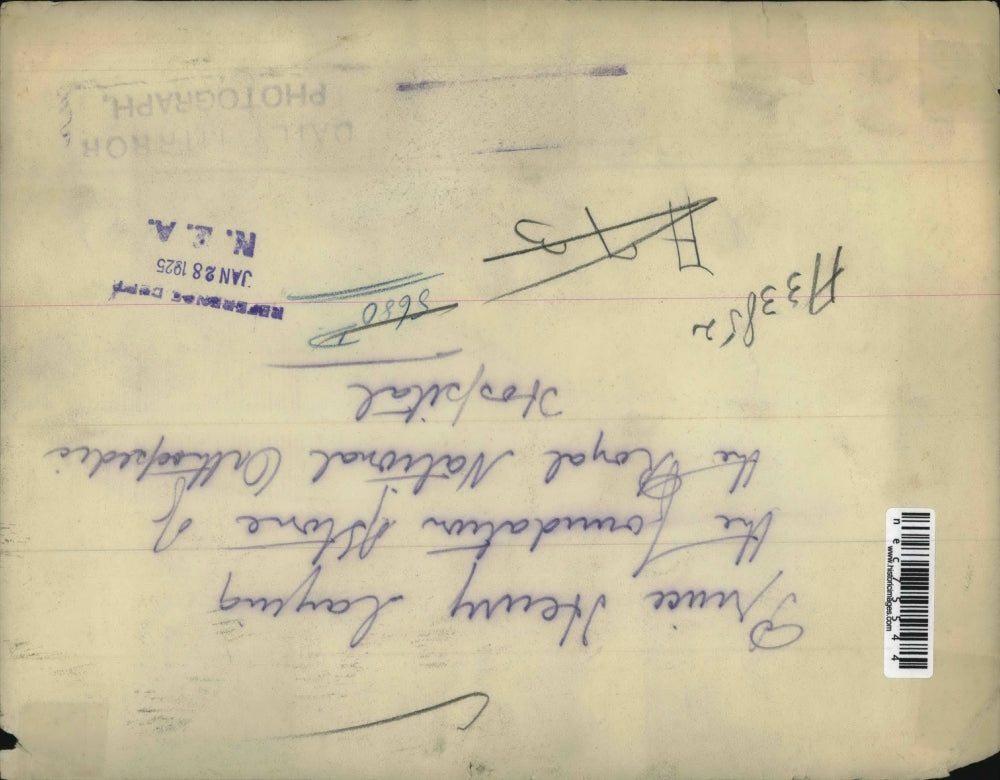 Prince Henry laying
the foundation stone of
the Royal National Orthopedic
Hospital
A33852
5680
REFERENCE DEPT
JAN 28 1925
N. E. A.
DAILY MIRROR
PHOTOGRAPH.
necr75544
www.historicimages.com